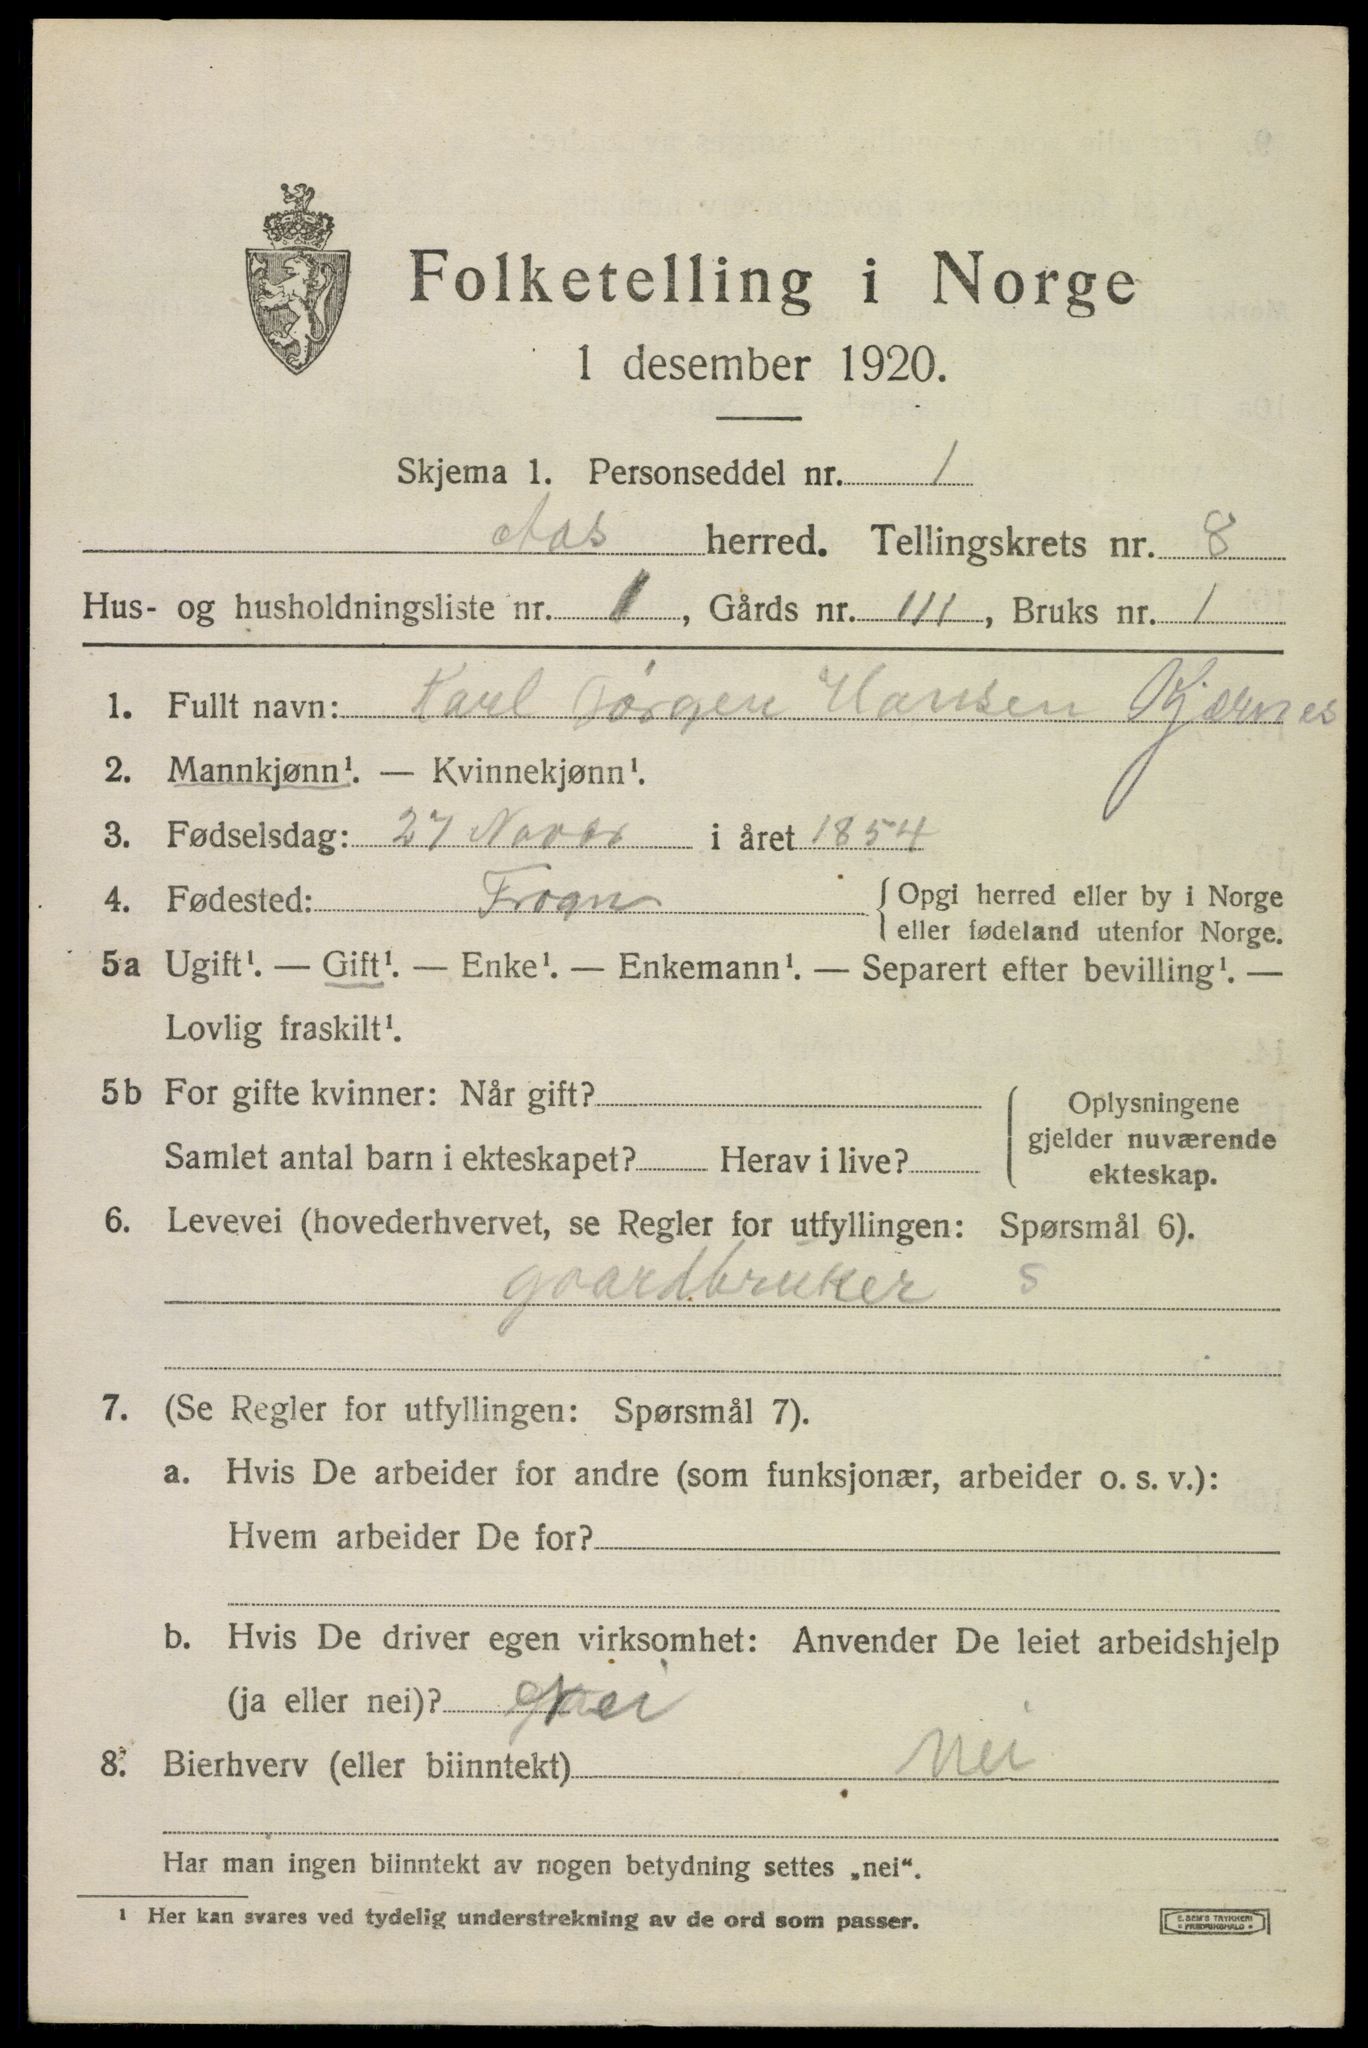 Folketelling i Norge
1 desember 1920.
Skjema 1. Personseddel nr. 1
Aas herred. Tellingskrets nr. 8
Hus- og husholdningsliste nr. 1, Gårds nr. 111, Bruks nr. 1
1. Fullt navn: Karl Jørgen Hansen Kjærnes
2. Mannkjønn¹. — Kvinnekjønn¹.
3. Fødselsdag: 27 Novbr i året 1854
4. Fødested: Frogn { Opgi herred eller by i Norge
eller fødeland utenfor Norge.
5a Ugift¹. — Gift¹. — Enke¹. — Enkemann¹. — Separert efter bevilling¹. —
Lovlig fraskilt¹.
5b For gifte kvinner: Når gift?
Samlet antal barn i ekteskapet? Herav i live?
Oplysningene
gjelder nuværende
ekteskap.
6. Levevei (hovederhvervet, se Regler for utfyllingen: Spørsmål 6).
gaardbruker s
7. (Se Regler for utfyllingen: Spørsmål 7).
a. Hvis De arbeider for andre (som funksjonær, arbeider o. s. v.):
Hvem arbeider De for?
b. Hvis De driver egen virksomhet: Anvender De leiet arbeidshjelp
(ja eller nei)? nei
8. Bierhverv (eller biinntekt) Nei
Har man ingen biinntekt av nogen betydning settes „nei“.
¹ Her kan svares ved tydelig understrekning av de ord som passer.
E. SEM'S TRYKKERI
FREDRIKSHALD